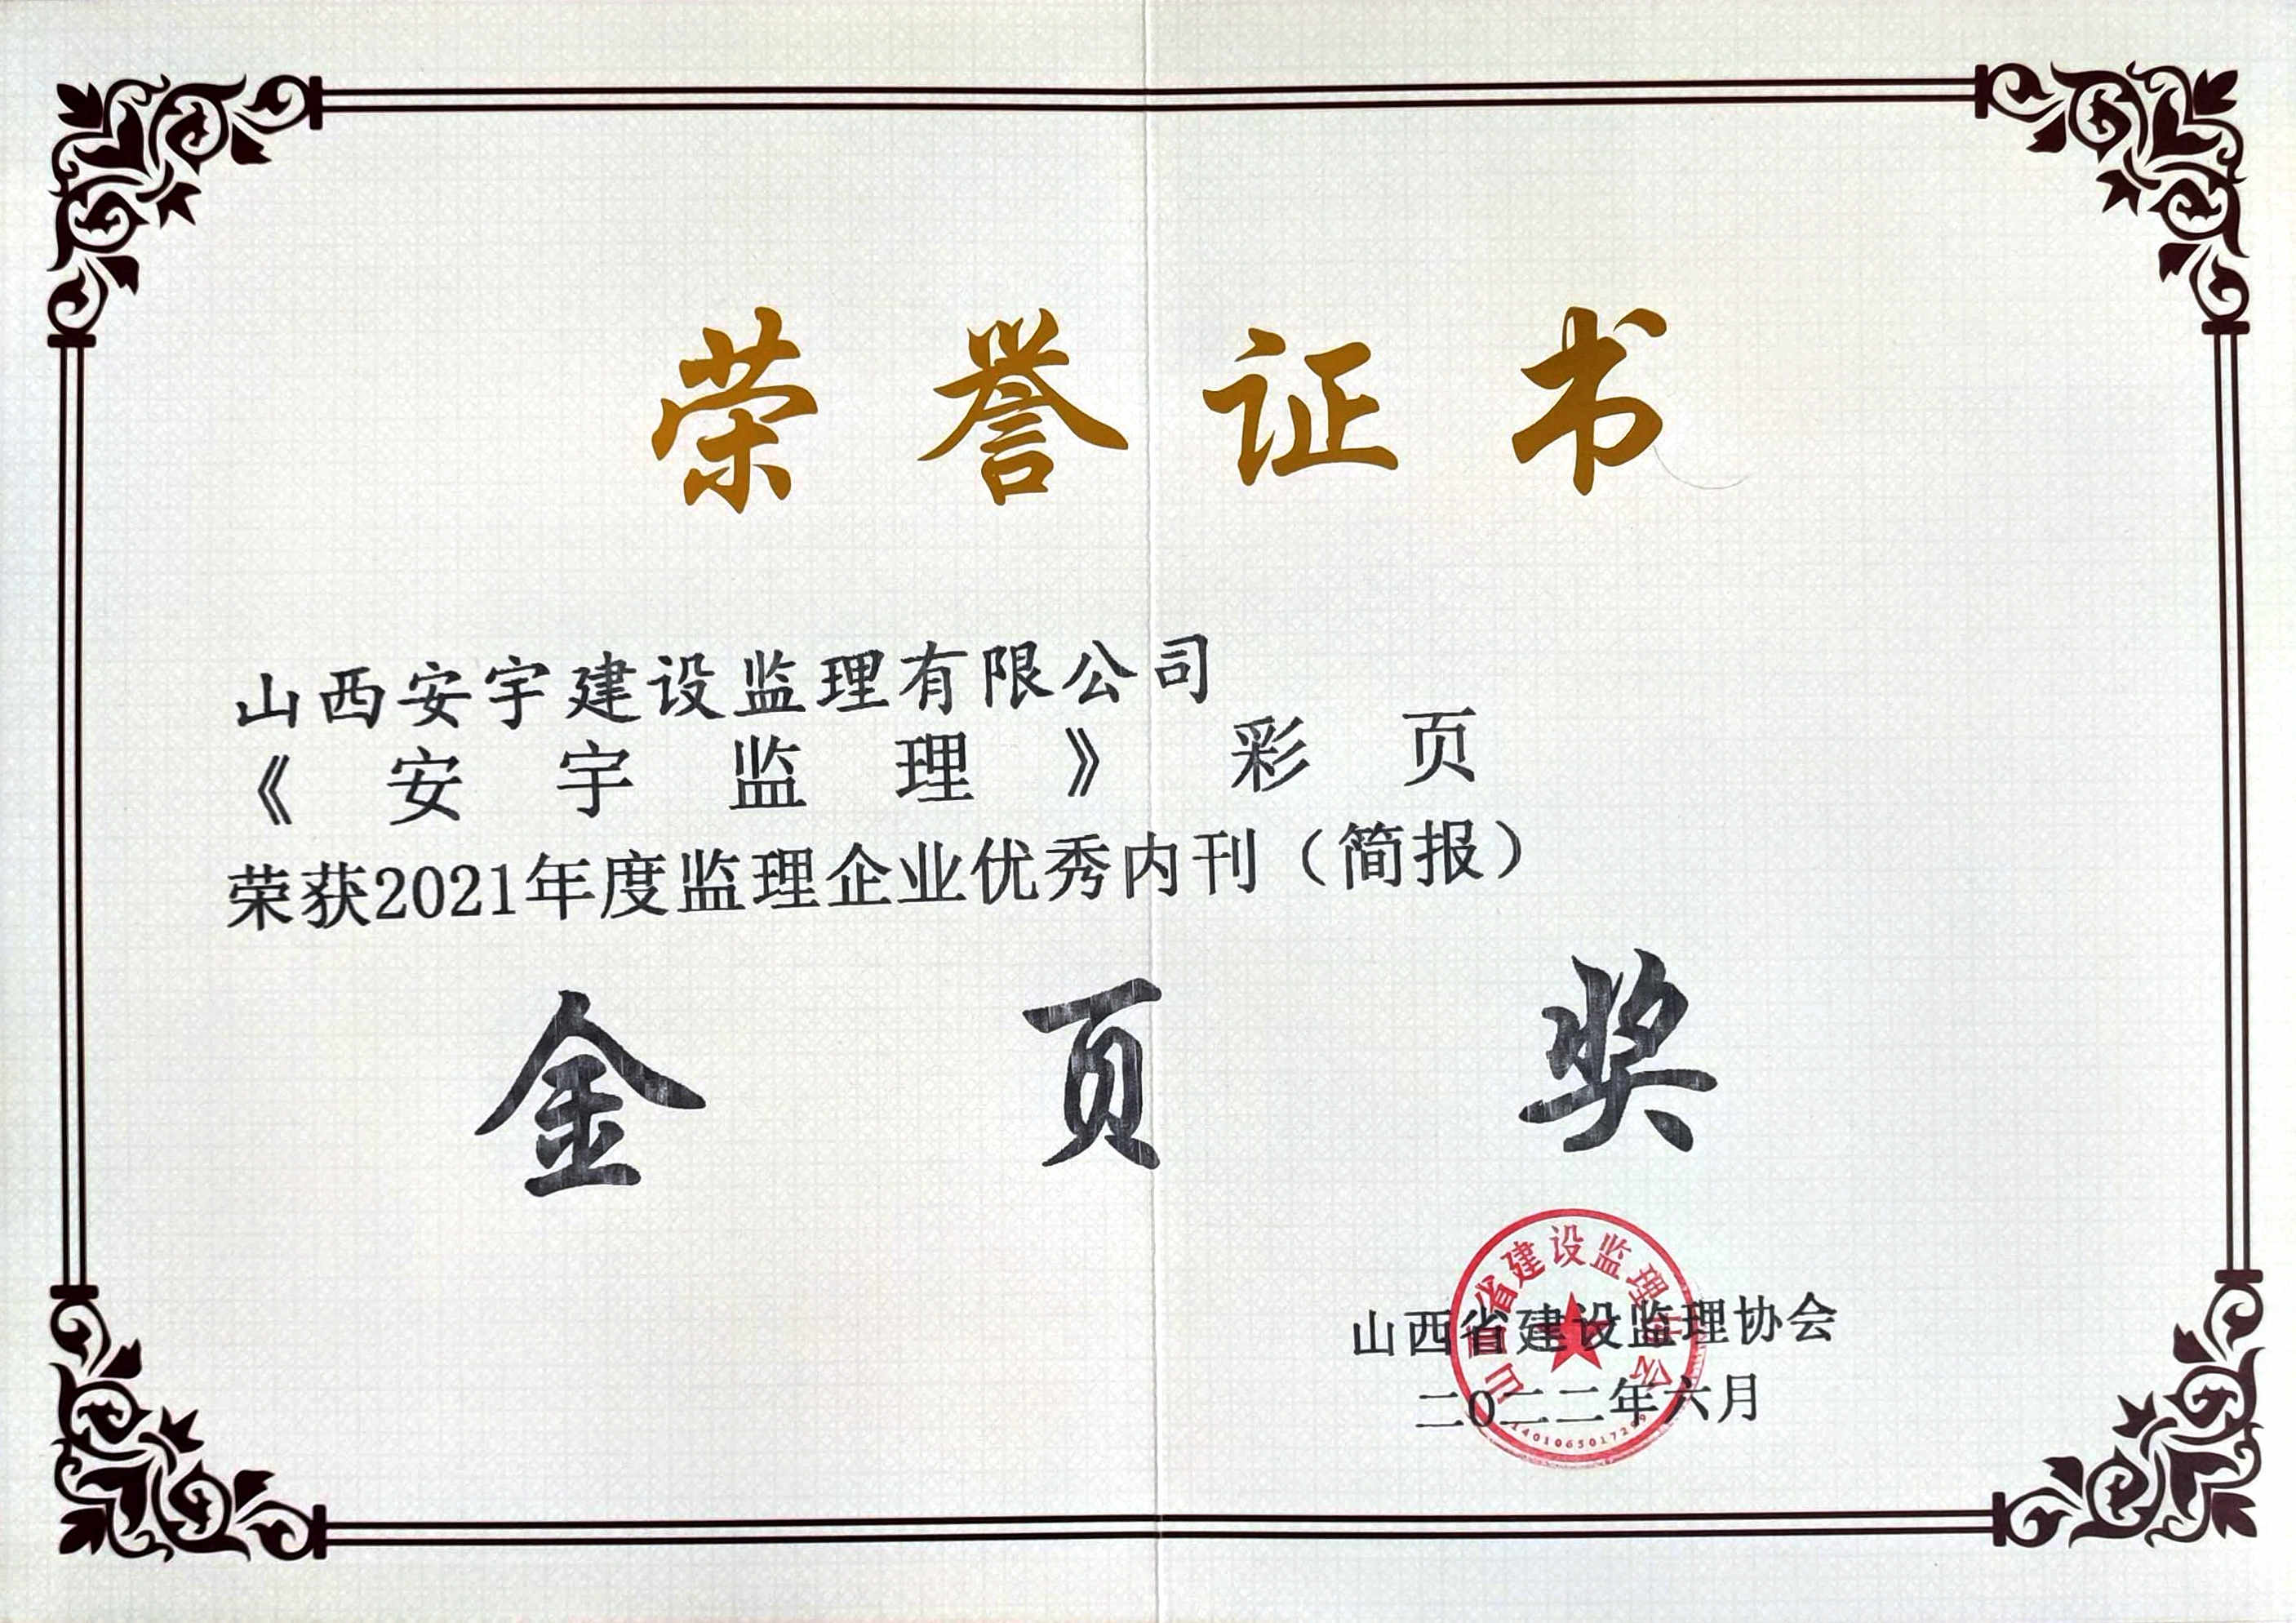 荣誉证书
山西安宇建设监理有限公司
《安宇监理》彩页
荣获2021年度监理企业优秀内刊（简报）
金页奖
山西省建设监理协会
山西省建设监理协会
二〇二二年六月